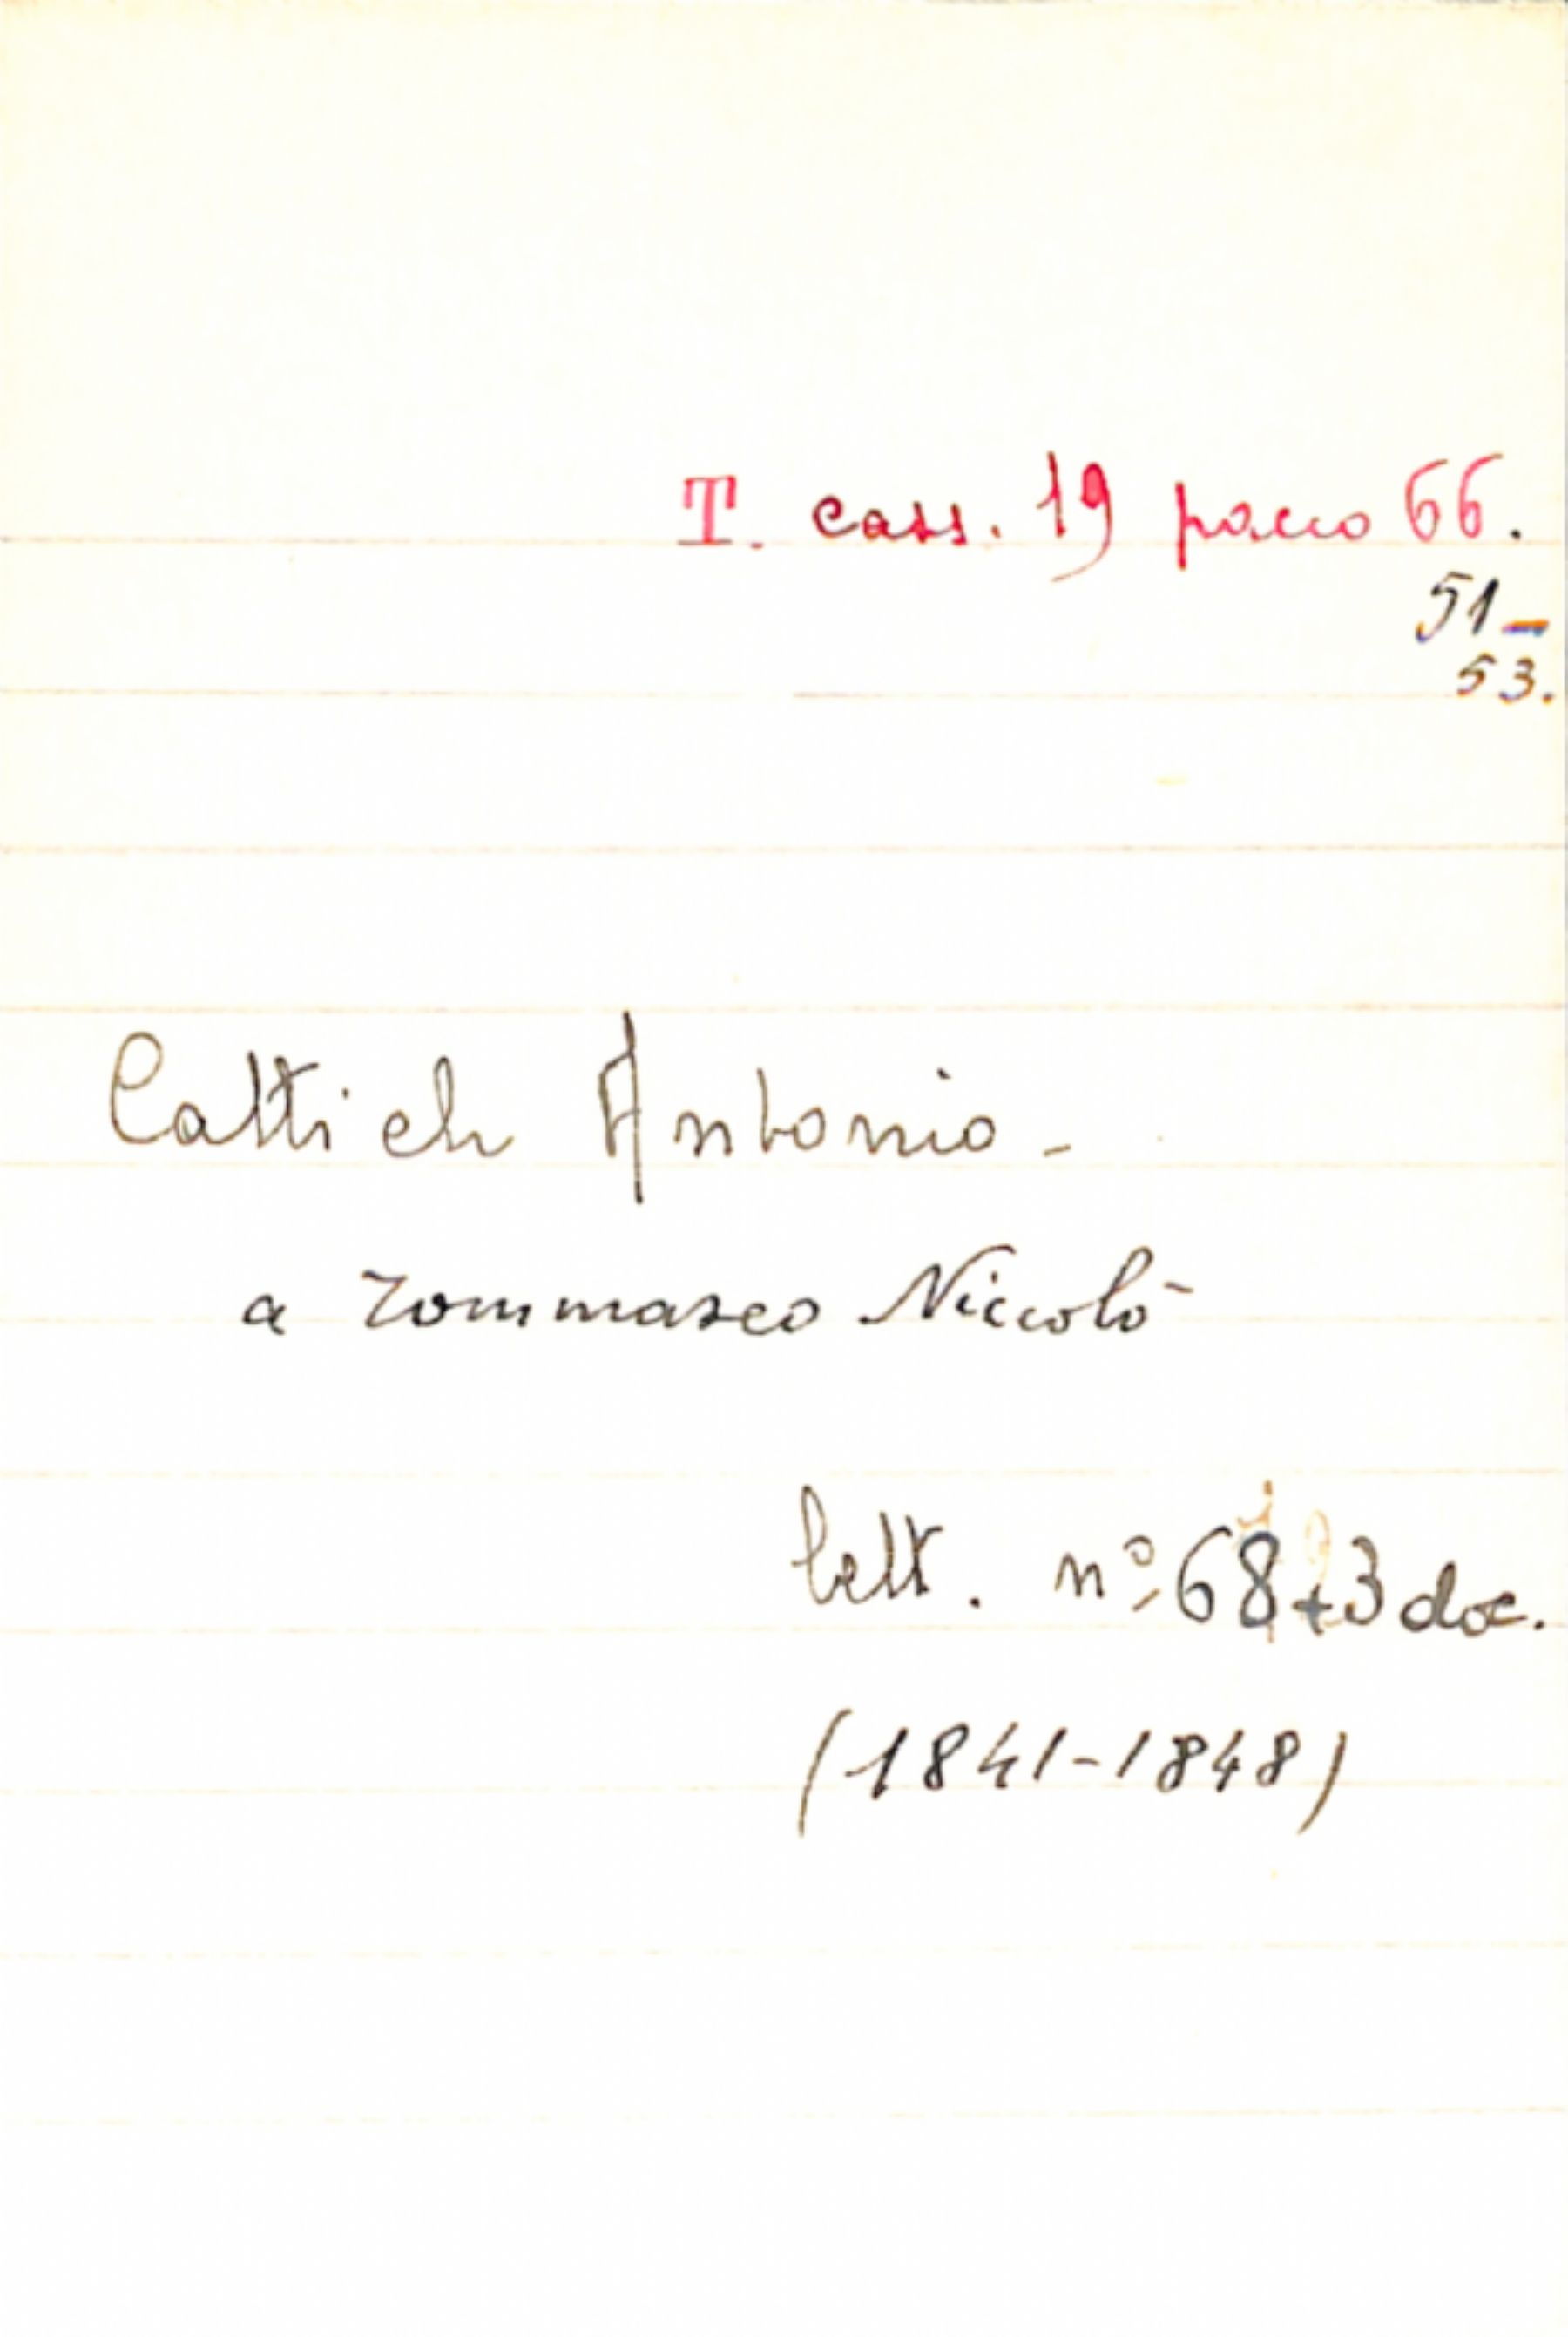 T. cass. 19 pacco 66.
51-
53.
Cattich Antonio -
a Tommaseo Niccolò
lett. nº 68+3 doc.
(1841-1848)